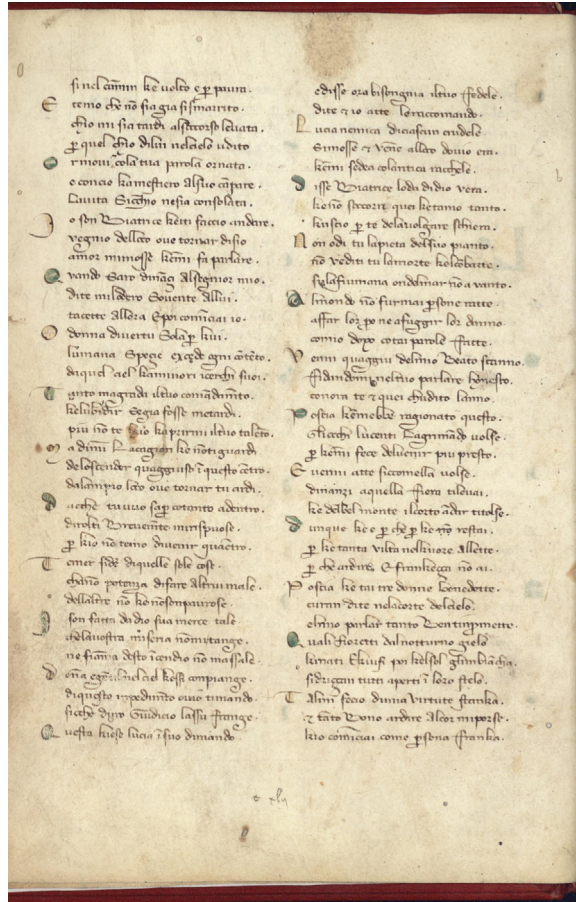 si nel cãmin ke volto e p̱ paura.
E temo che nõ sia gia si smarrito.
chio mi sia tardi al soccorso levata.
p̱ quel chio di lui nel cielo udito
Or movi cola tua parola ornata.
e concio ka mestiero al suo cãpare.
Laiuta Sicchio ne sia consolata.
Io son Biatrice ke tti faccio andare.
vegnio del loco ove tornar disio
amor mi mosse ke mi fa parlare.
Quando Saro dinãçi al segnior mio.
di te mi lodero Sovente allui.
tacette allora Epoi cominciai io.
O donna di vertu Sola p̱ kui.
lumana Spegie excede ogni cõtẽto.
di quel ciel ka minori i cerchi suoi.
Tanto magrada il tuo comãdamẽto.
ke lubidir Segia fosse me tardi.
piu nõ te kio kapirmi il tuo talẽto.
Ma dimi La cagion ke nõ ti guardi
de lo scender quaggiuso ĩ questo cẽtro.
da lampio loco ove tornar tu ardi.
Da che tu vuo sap̱ cotanto adentro.
dirolti Brevemẽte mi rispuose.
p̱ kio nõ temo di venir qua ẽtro.
Temer si de di quelle sole cose.
channo potença di fare altrui male.
dellaltre nõ ke nõ son paurose.
Io son fatta da dio sua merce tale
che la vostra miseria nõ mi tange.
ne fiãma desto ĩcendio nõ massale.
Dõna e gẽtil nel ciel ke ssi compiange.
di questo ĩpedimẽto oviõ ti mando.
sicche duro Giudicio lassu frange.
Questa kiese lucia ĩ suo dimando.
e disse ora bisongnia il tuo fedele.
di te & io atte lo raccomando.
Lucia nemica di ciascun crudele
Si mosse & vẽne alloco dovio era.
ke mi sedea colantica rachele.
Disse Biatrice loda di dio vera.
ke nõ soccorri quei ke tamo tanto.
kuscio p̱ te de la volgare schiera.
Non odi tu la pieta del suo pianto.
nõ vedi tu la morte kel cõbatte.
su la fiumana ondel mar nõ a vanto.
Al mondo nõ fur mai p̱sone ratte.
affar lor pro ne afuggir lor danno.
comio dopo cotai parole fatte.
Venni quaggiu del mio Beato scanno.
fidandomi nel tuo parlare honesto.
conora te & quei chudito lanno.
Poscia ke mebbe ragionato questo.
Gliocchi lucenti Lagrimãdo volse.
p̱ ke mi fece del venir piu presto.
E venni atte siccomella volse.
dinanzi aquella fiera ti levai.
ke del bel monte il corto andar ti tolse.
Dunque ke e p̱ che p̱ ke restai.
p̱ ke tanta vilta nel kuore allette.
p̱ che ardire E frankeça nõ ai.
Poscia ke tai tre donne benedette.
curan di te ne la corte del cielo.
el mio parlar tanto Ben timpromette.
Quali fioretti dal notturno gielo
kinati E kiusi poi kel sol glimbiãcha.
si driççan tutti aperti ĩ loro stelo.
Tal mi fecio di mia virtute stanka.
& tãto Bono ardire al cor mi corse.
kio comĩciai come p̱sona franka.
c xlij